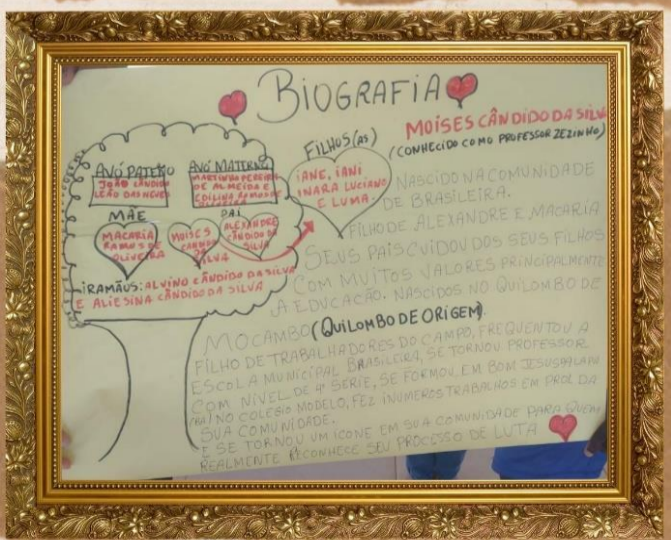 BIOGRAFIA
MOISES CÂNDIDO DA SILVA
(CONHECIDO COMO PROFESSOR ZEZINHO)
AVÓ PATERNO
JOÃO CÂNDIDO
LEÃO DAS NEVES
AVÓ MATERNO
MARTINHO PEREIRA
DE ALMEIDA E
EDILINA RAMOS DE
MÃE
MACARIA
RAMOS DE
OLIVEIRA
MOISES
CANDIDO
DA
SILVA
PAI
ALEXANDRE
CÂNDIDO DA
SILVA
IRAMÃUS: ALVINO CÂNDIDO DA SILVA
E ALIESINA CÂNDIDO DA SILVA
FILHOS(AS)
IANE, IANI
INARA LUCIANO
E LUMA.
NASCIDO NA COMUNIDADE
DE BRASILEIRA.
FILHO DE ALEXANDRE E MACARIA
SEUS PAIS CUIDOU DOS SEUS FILHOS
COM MUITOS VALORES PRINCIPALMENTE
A EDUCAÇÃO. NASCIDOS NO QUILOMBO DE
MOCAMBO (QUILOMBO DE ORIGEM).
FILHO DE TRABALHADORES DO CAMPO, FREQUENTOU A
ESCOLA MUNICIPAL BRASILEIRA, SE TORNOU PROFESSOR
COM NÍVEL DE 4ª SÉRIE, SE FORMOU EM BOM JESUS DA LAPA
(BA) NO COLÉGIO MODELO, FEZ INÚMEROS TRABALHOS EM PROL DA
SUA COMUNIDADE.
E SE TORNOU UM ÍCONE EM SUA COMUNIDADE PARA QUEM
REALMENTE RECONHECE SEU PROCESSO DE LUTA